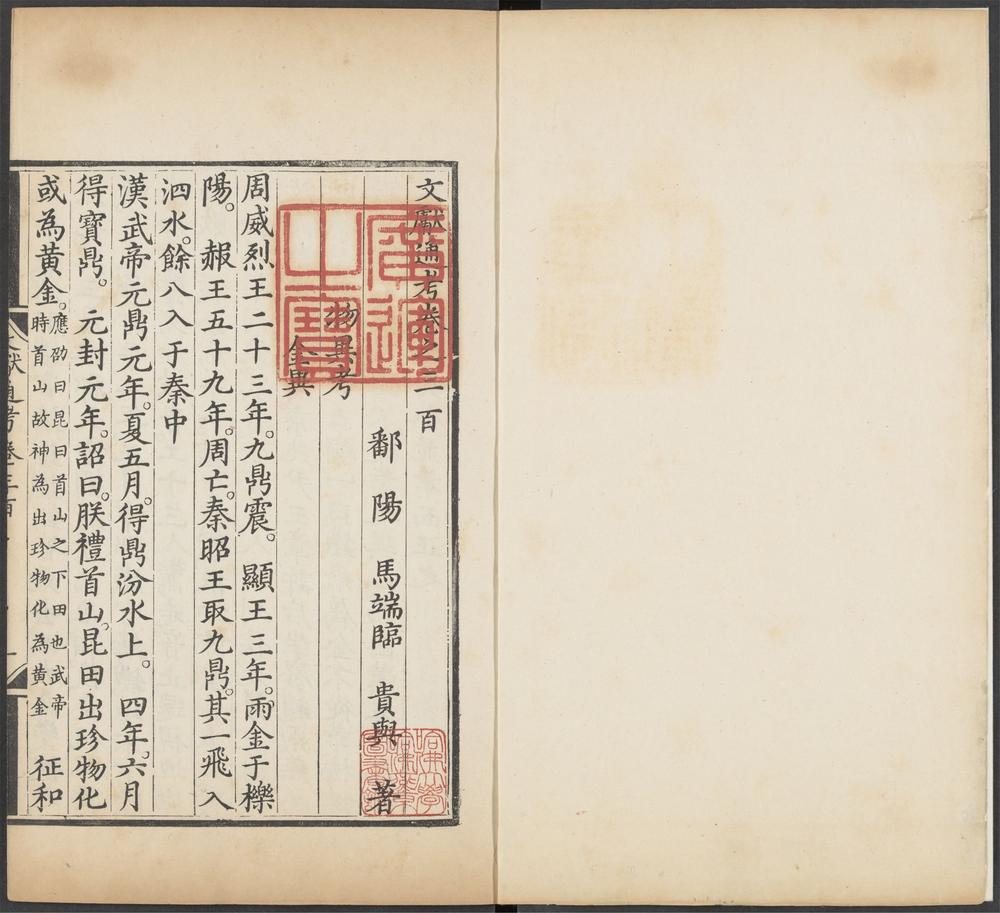 文獻通考卷之三百
鄱陽 馬端臨 貴與 著
物異考
金異
周威烈王二十三年。九鼎震。 顯王三年。雨金于櫟
陽。 赧王五十九年。周亡。秦昭王取九鼎。其一飛入
泗水。餘八入于秦中
漢武帝元鼎元年。夏五月。得鼎汾水上。 四年。六月
得寶鼎。 元封元年。詔曰。朕禮首山。昆田出珍物化
或為黃金。應劭曰昆曰首山之下田也武帝
時首山故神為出珍物化為黃金 征和
文獻通考卷三百
廣運
之寶